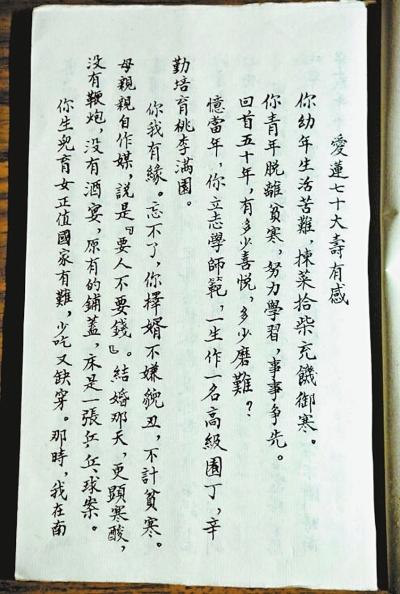 愛蓮七十大壽有感
你幼年生活苦難，揀菜拾柴充饑御寒。
你青年脫離貧寒，努力學習，事事爭先。
回首五十年，有多少喜悅，多少磨難？
憶當年，你立志學師範，一生作一名高級園丁，辛
勤培育桃李滿園。
你我有緣。忘不了，你擇婿不嫌貌丑，不計貧寒。
母親親自作媒，說是『要人不要錢』。結婚那天，更顯寒酸，
没有鞭炮，没有酒宴，原有的鋪蓋，床是一張乒乓球案。
你生兒育女正值國家有難，少吃又缺穿。那時，我在南